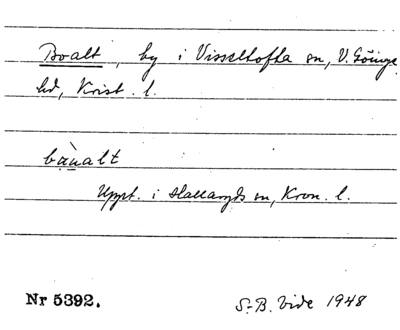 Boalt, by i Visseltofta sn, V. Göinge
hd, Krist. l.
bàualt
Uppt. i Hallaryds sn, Kron. l.
Nr 5392.
S.-B. Vide 1948